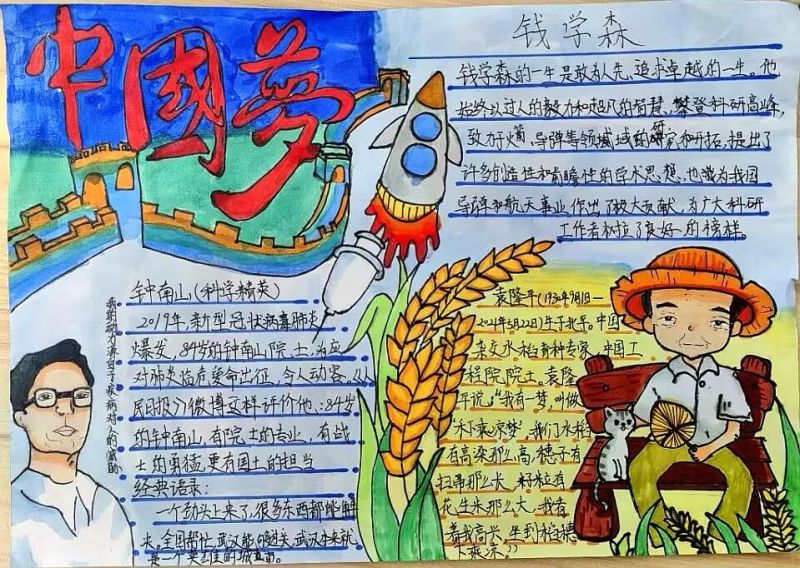 中國夢
钱学森
钱学森的一生是敢为人先,追求卓越的一生。他
始终以过人的毅力和超凡的智慧,攀登科研高峰,
致力于火箭、导弹等领域域的研究和开拓,提出了
许多创造性和前瞻性的学术思想,也为我国
导弹和航天事业作出了极大贡献,为广大科研
工作者树立了良好的榜样。
钟南山(科学精英)
2019年,新型冠状病毒肺炎
爆发,84岁的钟南山院士为应
对肺炎临危受命出征,令人动容。《人
民日报》微博这样评价他:84岁
的钟南山,有院士的专业,有战
士的勇猛,更有国士的担当
经典语录:
一个劲头上来了,很多东西都能解
决。全国帮忙,武汉能够过关,武汉本来就
是一个英雄的城市。
袁隆平(1930年9月1日—
2021年5月22日)生于北平。中国
杂交水稻育种专家,中国工
程院院士。袁隆
平说,“我有一梦,叫做
‘禾下乘凉梦’,我们水稻
有高粱那么高,穗子有
扫帚那么大,籽粒有
花生米那么大,我看
着我高兴,坐到稻穗
下乘凉。”